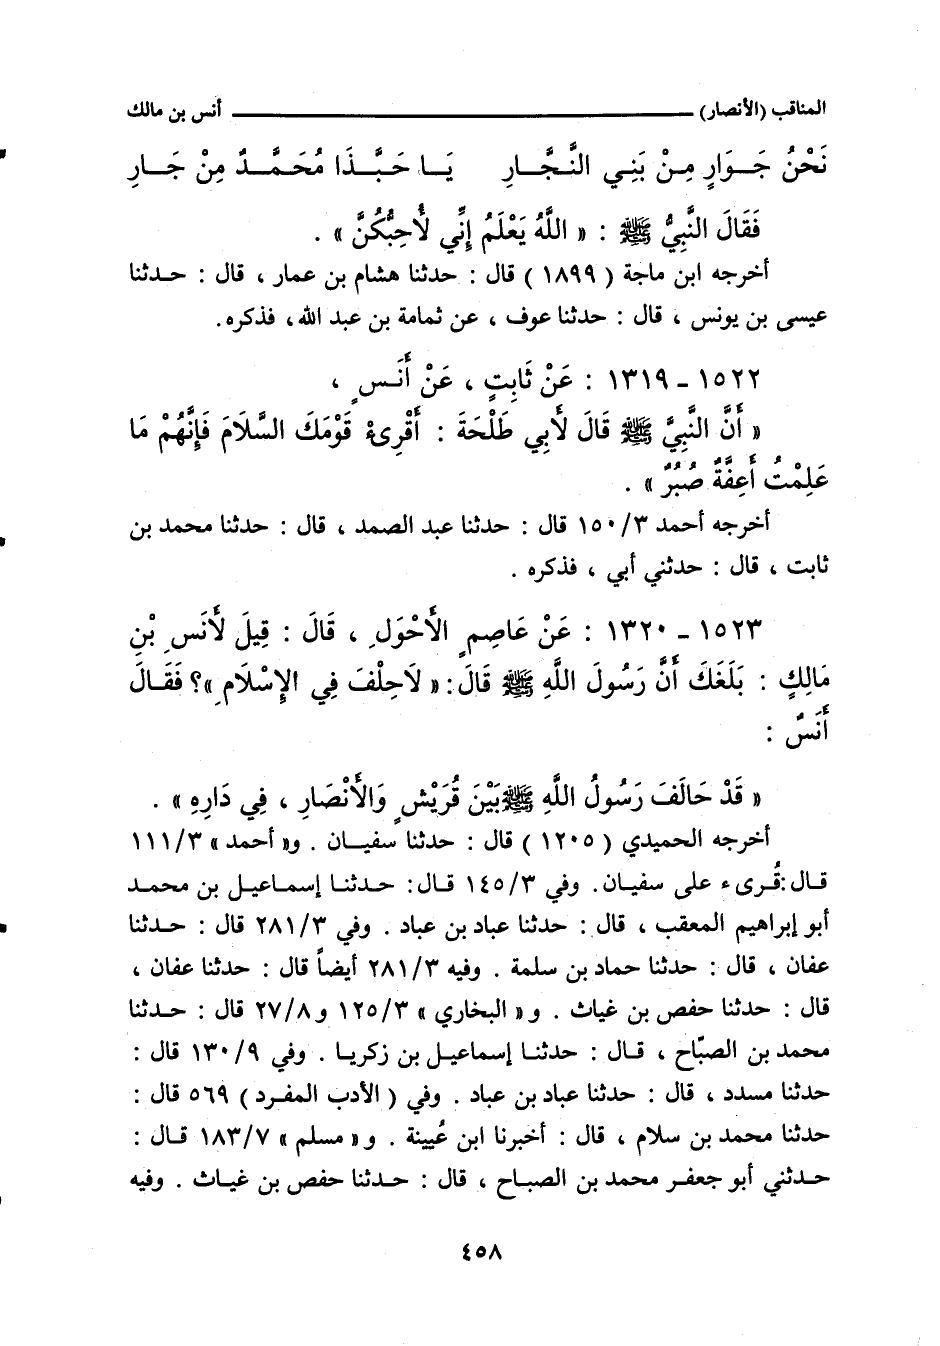 المناقب (الأنصار) ــــــــــــــــــــ أنس بن مالك
نَحْنُ جَـوَارٍ مِـنْ بَنِي النَّجَّـارِ يَـا حَبَّـذَا مُحَمَّـدٌ مِنْ جَـارِ
فَقَالَ النَّبِيُّ ﷺ : « اللَّهُ يَعْلَمُ إِنِّي لأُحِبُّكُنَّ » .
أخرجه ابن ماجة ( ١٨٩٩ ) قال : حدثنا هشام بن عمار ، قال : حـدثنا
عيسى بن يونس ، قال : حدثنا عوف ، عن ثمامة بن عبد الله، فذكره.
١٥٢٢ - ١٣١٩ : عَنْ ثَابِتٍ ، عَنْ أَنَسٍ ،
« أَنَّ النَّبِيَّ ﷺ قَالَ لأَبِي طَلْحَةَ : أَقْرِئْ قَوْمَكَ السَّلاَمَ فَإِنَّهُمْ مَا
عَلِمْتُ أَعِفَّةٌ صُبُرٌ » .
أخرجه أحمد ١٥٠/٣ قال : حدثنا عبد الصمد ، قال : حدثنا محمد بن
ثابت ، قال : حدثني أبي ، فذكره .
١٥٢٣ - ١٣٢٠ : عَنْ عَاصِمٍ الأَحْوَلِ ، قَالَ : قِيلَ لأَنَسِ بْنِ
مَالِكٍ : بَلَغَكَ أَنَّ رَسُولَ اللَّهِ ﷺ قَالَ: « لاَحِلْفَ فِي الإِسْلاَمِ »؟ فَقَـالَ
أَنَسٌ :
« قَدْ حَالَفَ رَسُولُ اللَّهِ ﷺ بَيْنَ قُرَيْشٍ وَالأَنْصَارِ ، فِي دَارِهِ » .
أخرجه الحميدي ( ١٢٠٥ ) قال : حدثنا سفيـان . و« أحمد » ١١١/٣
قـال :قُرىء على سفيان. وفي ١٤٥/٣ قـال: حـدثنـا إسمـاعيـل بن محمـد
أبو إبراهيم المعقب ، قال : حدثنا عباد بن عباد . وفي ٢٨١/٣ قال : حـدثنا
عفان ، قال : حدثنا حماد بن سلمة . وفيه ٢٨١/٣ أيضاً قال : حدثنا عفان ،
قال : حدثنا حفص بن غياث . و « البخاري » ١٢٥/٣ و٢٧/٨ قال : حـدثنا
محمد بن الصبّاح ، قـال : حدثنـا إسماعيـل بن زكريـا . وفي ١٣٠/٩ قال :
حدثنا مسدد ، قال : حدثنا عباد بن عباد . وفي ( الأدب المفـرد ) ٥٦٩ قال :
حدثنا محمد بن سلام ، قال : أخبرنا ابن عُيينة . و« مسلم » ١٨٣/٧ قـال :
حـدثني أبو جعفـر محمد بن الصبـاح ، قال : حـدثنا حفص بن غيـاث . وفيه
٤٥٨